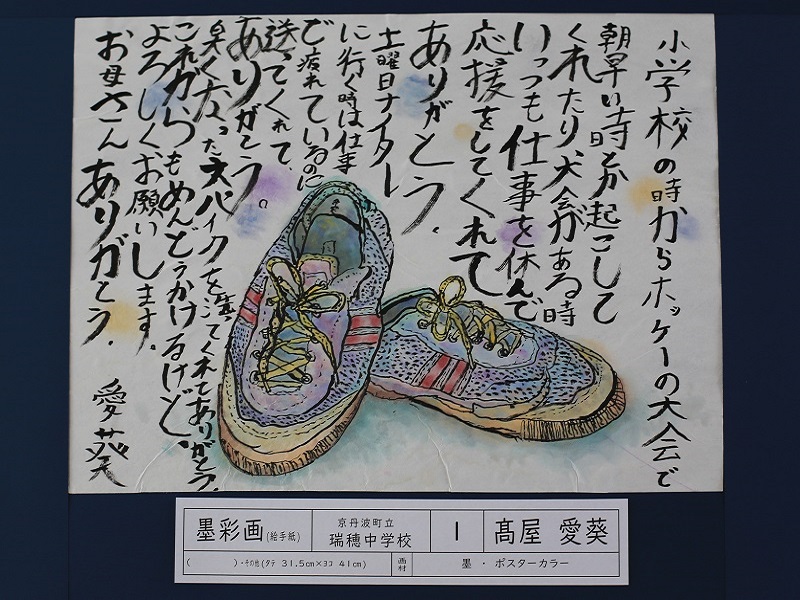 小学校の時からホッケーの大会で
朝早い時とか起こして
くれたり、大会がある時
いつも仕事を休んで
応援をしてくれて
ありがとう。
土曜日ナイター
に行く時は仕事
で疲れているのに
送ってくれて、
ありがとう。
臭くなったスパイクを洗ってくれてありがとう。
これからもめんどうかけるけど、
よろしくお願いします。
お母さんありがとう。
愛葵
墨彩画(絵手紙)
京丹波町立
瑞穂中学校
1
髙屋 愛葵
( )・その他(タテ 31.5cm×ヨコ 41cm)
画材
墨・ポスターカラー